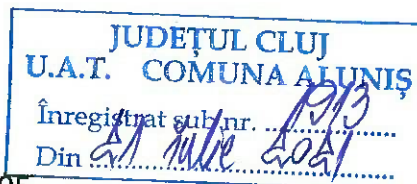 JUDEȚUL CLUJ
U.A.T. COMUNA ALUNIȘ
Înregistrat sub nr. 1913
Din 21 iulie 2021